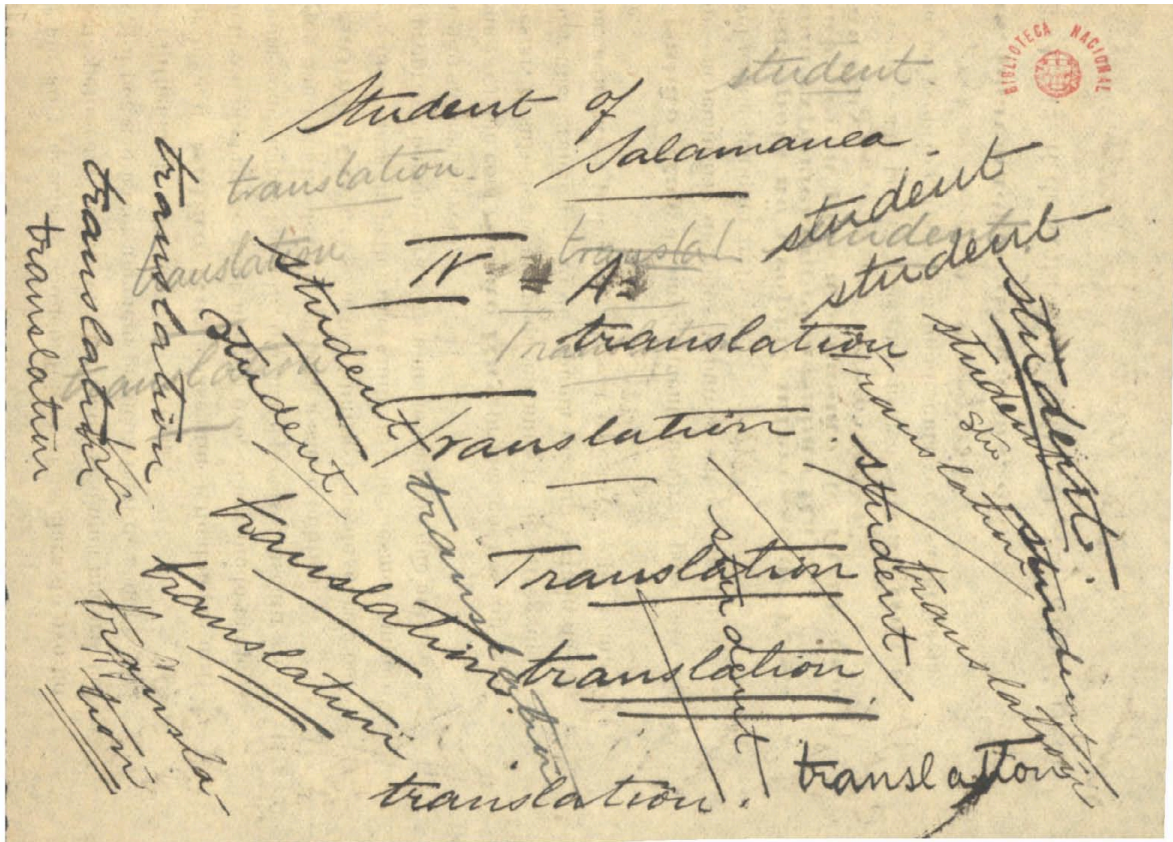 BIBLIOTECA NACIONAL
student.
Student of
Salamanca.
translation.
student
student
student
IV A.
translat
translation
translation
translation
translation
translation
student
student
translation
student.
student
stu
translation
translation.
translation
student
student
translation
Translation
student
translation
translation
translation.
translation
transla-
tion
translation
student
translation.
translation